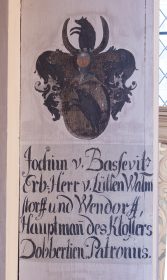 Jochim v. Bassevitz
Erb-Herr v. Lütten Walm
storff und Wendorff,
Hauptman des Klosters
Dobbertien, Patronus.